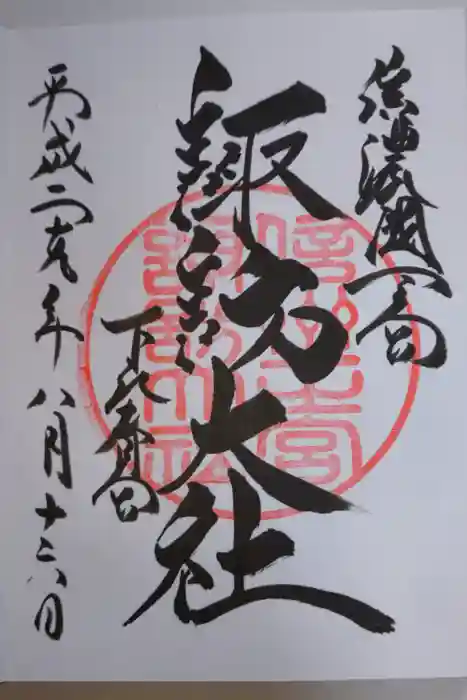 信濃國一之宮
諏訪大社
下社春宮
平成二十九年八月十六日
諏訪大社